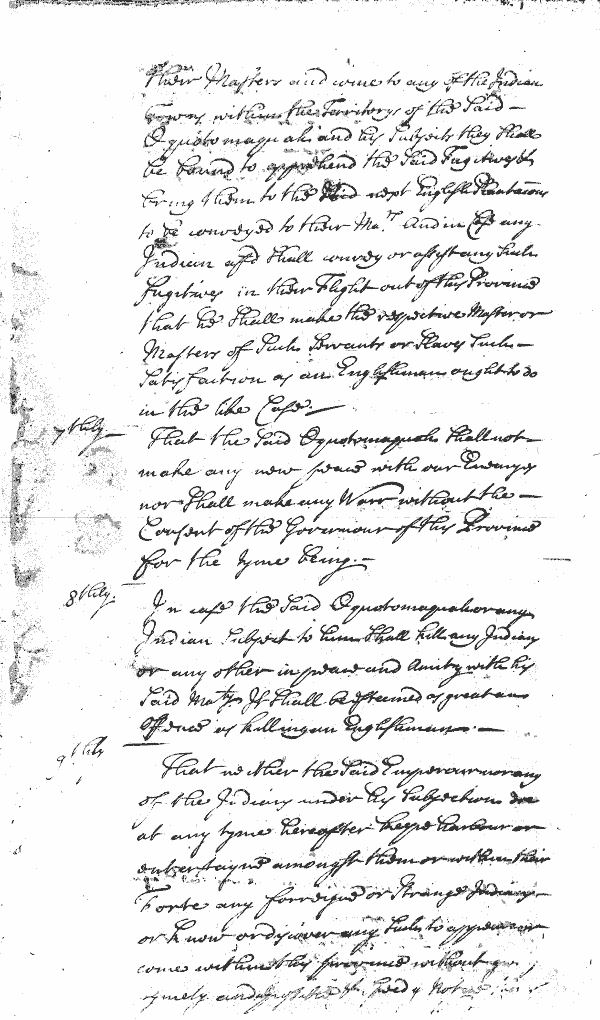 their Masters and come to any of the Indian
Townes within the Territorys of the Said —
Oquotomaquah and his Subjects they Shall
be bound to apprehend the Said Fugitives &
bring them to the next English Plantacons
to be conveyed to their Ma:rs And in Case any
Indian afsd Shall convey or assist any Such
fugitives in their Flight out of this Province
that he Shall make the respective Master or
Masters of Such Servants or Slaves Such —
Satisfaction as an Englishman ought to do
in the like Case. —
7thly — That the Said Oquotomaquah Shall not —
make any new peace with our Enemys
nor Shall make any Warr without the —
Consent of the Governour of this Province
for the tyme being. —
8thly. In case the Said Oquotomaquah or any
Indian Subject to him Shall kill any Indian
or any other in peace and Amity with his
Said Maty It Shall be esteemed as great an
offence as killing an Englishman. —
9thly That neither the Said Emperour nor any
of the Indians under his Subjection do
at any tyme hereafter keepe harbour or
entertayne amongst them or within their
Forte any forreigne or Strange Indians
or know or discover any Such to appeare or
come within this province without
tymely and Speedy Notice